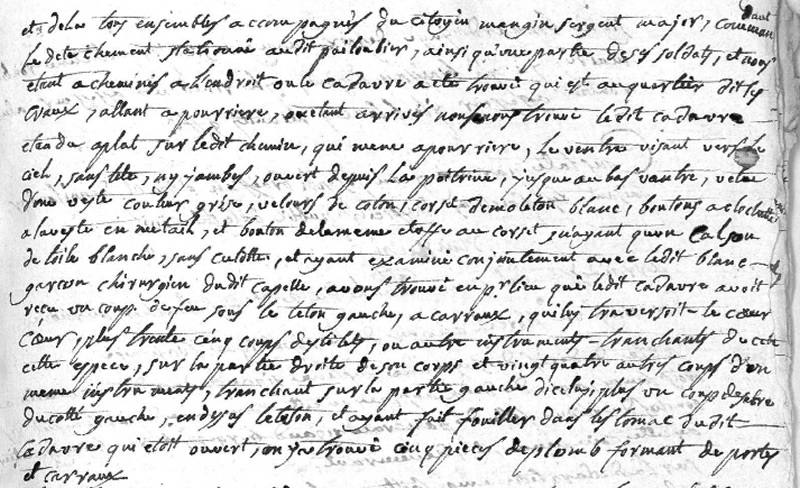 et dela tous ensembles accompagnés du citoyen mangin sergent major, comman
dant
le detachement stationné audit paiolalier, ainsi qu'une partie de ses soldats, et nous
etant acheminés a l'endroit ou le cadavre a eté trouvé qui est au quartier dit les
craux, allant a pourriere, ou etant arrivés nous avons trouvé ledit cadavre
etendu aplat sur ledit chemin, qui mene a pourriere, le ventre visant vers le
ciel, sans tete, ny jambes, ouvert depuis la poitrine, jusque au bas vantre, vetu
d'une veste couleur grise, velours de coton, corset de moleton blanc, boutons a clochette
a la veste en metail, et bouton de la meme etoffe au corset, n'ayant qu'un Calson
de toile blanche, sans culotte, et ayant examiné conjointement avec ledit blanc
garçon chirurgien dudit capelle, avons trouvé en pr lieu que ledit cadavre avoit
recu un coup de feu sous le teton gauche, a carraux, qui luy traversoit le cœur
Cœur, plus trente cinq coups de stilets, ou autre instruments tranchants de cette
cette espece, sur la partie droite de son corps et vingt quatre autres coups d'un
meme instruments, tranchant sur la partie gauche d'icelui, plus un coup de sabre
du cotté gauche, en dessus le teton, et ayant fait fouiller dans l'estomac dudit
Cadavre qui etoit ouvert, on y a trouvé cinq pieces de plomb formant de postes
et carraux